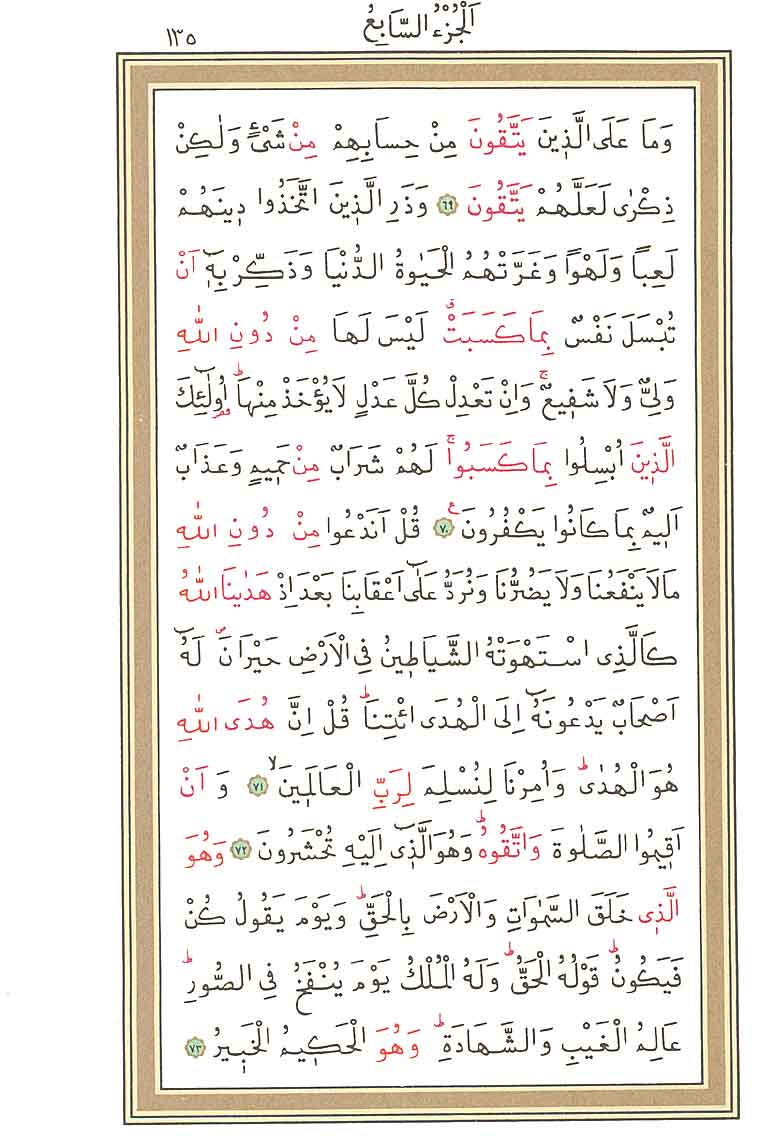 اَلْجُزْءُ السَّابِعُ
١٣٥
وَمَا عَلَى الَّذٖينَ يَتَّقُونَ مِنْ حِسَابِهِمْ مِنْ شَیْءٍ وَلٰكِنْ
ذِكْرٰى لَعَلَّهُمْ يَتَّقُونَ ﴿٦٩﴾ وَذَرِ الَّذٖينَ اتَّخَذُوا دٖينَهُمْ
لَعِباً وَلَهْوًا وَغَرَّتْهُمُ الْحَيٰوةُ الدُّنْيَا وَذَكِّرْ بِهٖٓ اَنْ
تُبْسَلَ نَفْسٌ بِمَا كَسَبَتْۗ لَيْسَ لَهَا مِنْ دُونِ اللّٰهِ
وَلِیٌّ وَلَا شَفٖيعٌۚ وَاِنْ تَعْدِلْ كُلَّ عَدْلٍ لَا يُؤْخَذْ مِنْهَاؕ اُولٰٓئِكَ
الَّذٖينَ اُبْسِلُوا بِمَا كَسَبُواۚ لَهُمْ شَرَابٌ مِنْ حَمٖيمٍ وَعَذَابٌ
اَلٖيمٌ بِمَا كَانُوا يَكْفُرُونَ ﴿٧٠﴾ ع قُلْ اَنَدْعُوا مِنْ دُونِ اللّٰهِ
مَالَا يَنْفَعُنَا وَلَا يَضُرُّنَا وَنُرَدُّ عَلٰٓى اَعْقَابِنَا بَعْدَ اِذْ هَدٰينَا اللّٰهُ
كَالَّذِى اسْتَهْوَتْهُ الشَّيَاطٖينُ فِى الْاَرْضِ حَيْرَانَۖ لَهُٓ
اَصْحَابٌ يَدْعُونَهُٓ اِلَى الْهُدَى ائْتِنَاؕ قُلْ اِنَّ هُدَى اللّٰهِ
هُوَ الْهُدٰىؕ وَاُمِرْنَا لِنُسْلِمَ لِرَبِّ الْعَالَمٖينَۙ ﴿٧١﴾ وَ اَنْ
اَقٖيمُوا الصَّلٰوةَ وَاتَّقُوهُؕ وَهُوَ الَّذٖٓى اِلَيْهِ تُحْشَرُونَ ﴿٧٢﴾ وَهُوَ
الَّذٖى خَلَقَ السَّمٰوَاتِ وَالْاَرْضَ بِالْحَقِّؕ وَيَوْمَ يَقُولُ كُنْ
فَيَكُونُؕ قَوْلُهُ الْحَقُّؕ وَلَهُ الْمُلْكُ يَوْمَ يُنْفَخُ فِى الصُّورِؕ
عَالِمُ الْغَيْبِ وَالشَّهَادَةِؕ وَهُوَ الْحَكٖيمُ الْخَبٖيرُ ﴿٧٣﴾